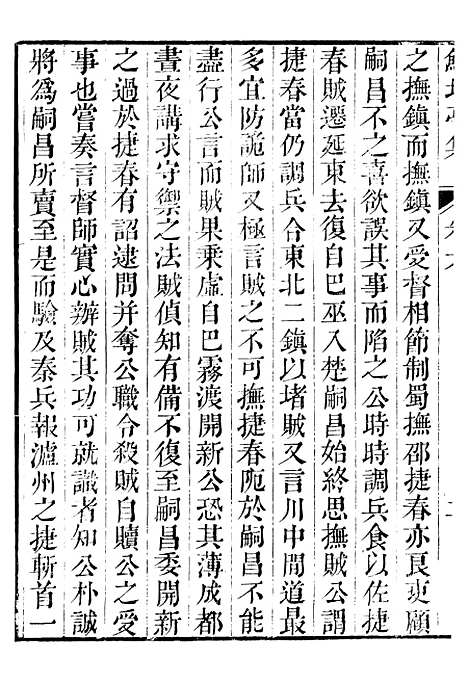 之撫鎮而撫鎮又受督相節制蜀撫邵捷春亦良吏顧
嗣昌不之喜欲誤其事而陷之公時時調兵食以佐捷
春賊遷延東去復自巴巫入楚嗣昌始終思撫賊公謂
捷春當仍調兵合東北二鎮以堵賊又言川中間道最
多宜防詭師又極言賊之不可撫捷春阨於嗣昌不能
盡行公言而賊果乘虛自巴霧渡開新公恐其薄成都
晝夜講求守禦之法賊偵知有備不復至嗣昌委開新
之過於捷春有詔逮問并奪公職令殺賊自贖公之愛
事也嘗奏言督師實心辦賊其功可就識者知公朴誠
將為嗣昌所賣至是而驗及秦兵報瀘州之捷斬首一